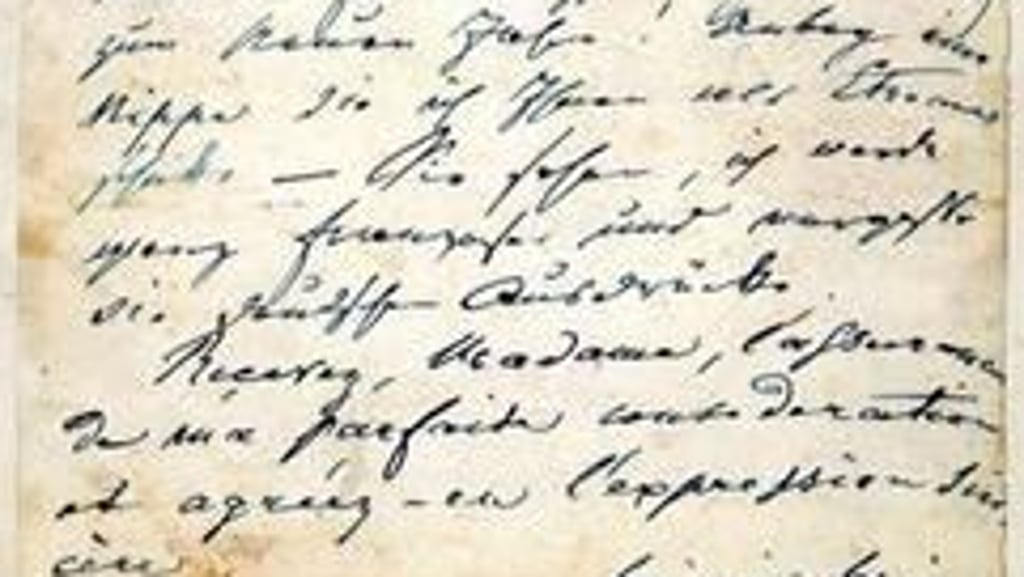 zum neuen Jahr! Anbey eine
Nippe die ich Ihnen als Etrenne
schicke — Sie sehen, ich werde
ganz Franzose und vergesse
die deutschen Ausdrücke.
Recevez, Madame, l'assurance
de ma parfaite consideration
et agréez-en l'expression sin-
cère